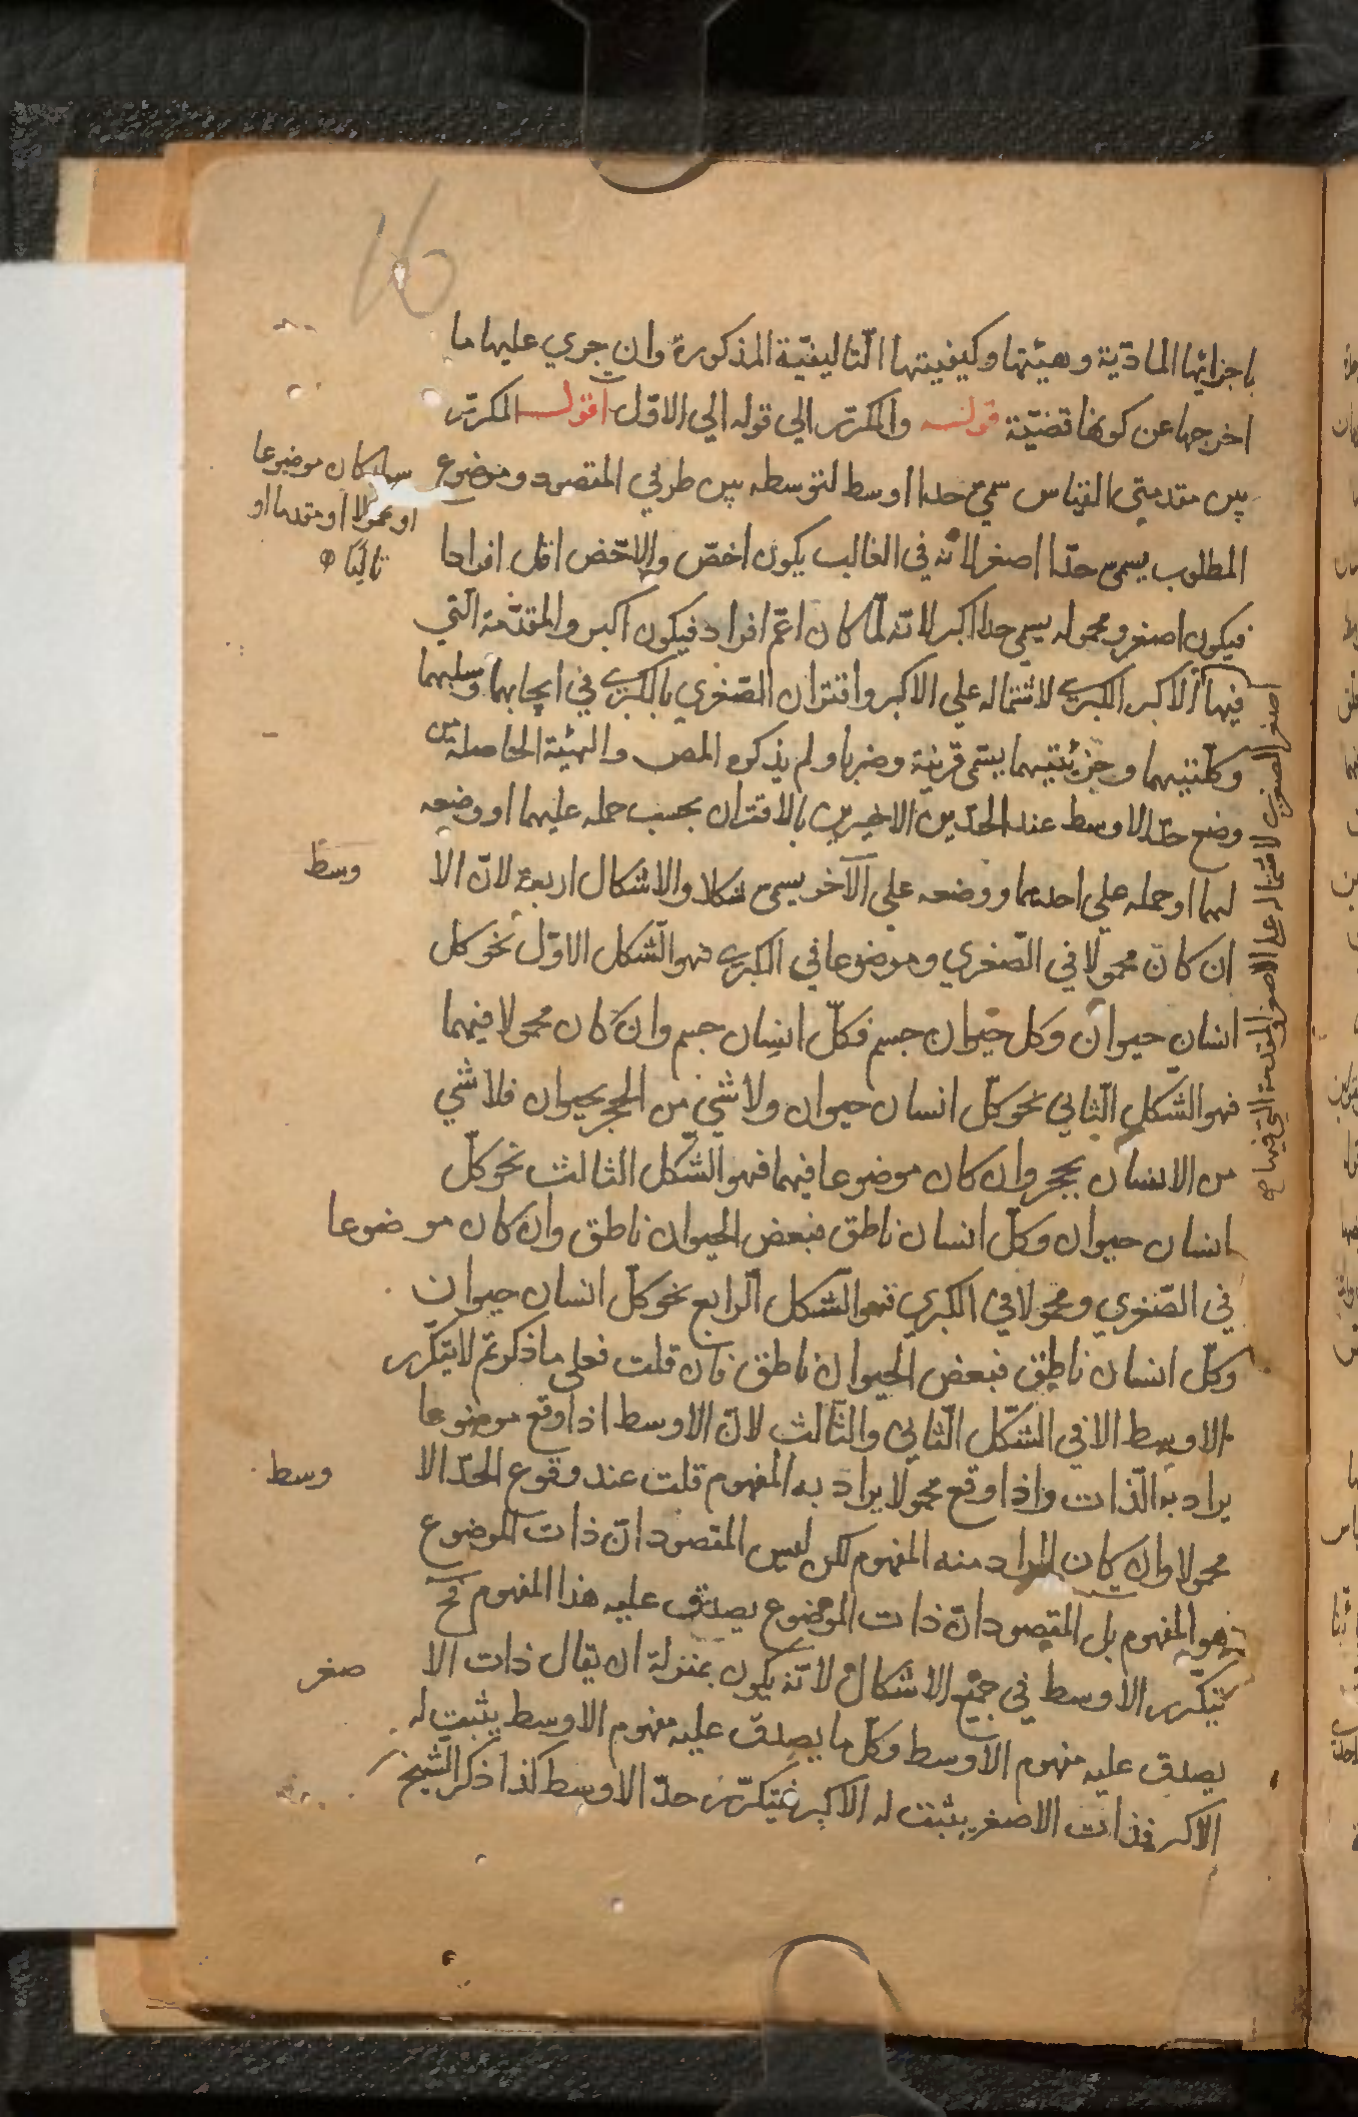 16
باجزائها المادّية وهيئتها وكيفيتها التّاليفيّة المذكورة وان جري عليها ما
اخرجها عن كونها قضيّة قوله والمكرّر الي قوله الي الاوّل اقول المكرّر
بين مقدمتي القياس سمي حدا اوسط لتوسطه بين طرفي المقصود وموضوع
سواء كان موضوعا
او محمولا او مقدما او
تاليًا
المطلوب يسمى حدّا اصغر لانّه في الغالب يكون اخصّ والاخص اقل افرادا
فيكون اصغر ومحموله يسمي حدا اكبر لانّه لمّا كان اعمّ افراد فيكون اكبر والمقدّمة الّتي
فيها الاكبر الكبري لاشتماله علي الاكبر واقتران الصّغري بالكبري في ايجابهما وسلبهما
اصغر الصغري لاشتماله علي الاصغر والمقدمة الّتي فيها
وكلّيتيهما وجزئيتيهما يسمّى قرينة وضربا ولم يذكره المص والهيئة الحاصلة من
وضع حدّ الاوسط عند الحدّين الاخيرين بالاقتران بحسب حمله عليهما او وضعه
لهما او حمله علي احدهما ووضعه علي الآخر يسمى شكلا والاشكال اربعة لانّ الا
وسط
ان كان محمولا في الصّغري وموضوعا في الكبري فهو الشّكل الاوّل نحو كل
انسان حيوان وكل حيوان جسم فكلّ انسان جسم وان كان محمولا فيهما
فهو الشّكل الثّاني نحو كلّ انسان حيوان ولا شيئ من الحجر بحيوان فلا شي
من الانسان بحجر وان كان موضوعا فيهما فهو الشّكل الثالث نحو كلّ
انسان حيوان وكلّ انسان ناطق فبعض الحيوان ناطق وان كان موضوعا
في الصّغري ومحمولا في الكبري فهو الشّكل الرّابع نحو كلّ انسان حيوان
وكلّ انسان ناطق فبعض الحيوان ناطق فان قلت فعلي ما ذكرتم لا يتكرّر
الاوسط الا في الشّكل الثّاني والثّالث لانّ الاوسط اذا وقع موضوعا
يراد به الذّات واذا وقع محمولا يراد به المفهوم قلت عند وقوع الحدّ الا
وسط
محمولا وان كان المراد منه المفهوم لكن ليس المقصود انّ ذات الموضوع
هو المفهوم بل المقصود انّ ذات الموضوع يصدق عليه هذا المفهوم فح
يتكّرر الاوسط في جميع الاشكال لانّه يكون بمنزلة ان يقال ذات الا
صغر
يصدق عليه مفهوم الاوسط وكلّ ما يصدق عليه مفهوم الاوسط يثبت له
الاكبر فذات الاصغر يثبت له الاكبر فيتكرّر حدّ الاوسط كذا ذكر الشّيخ